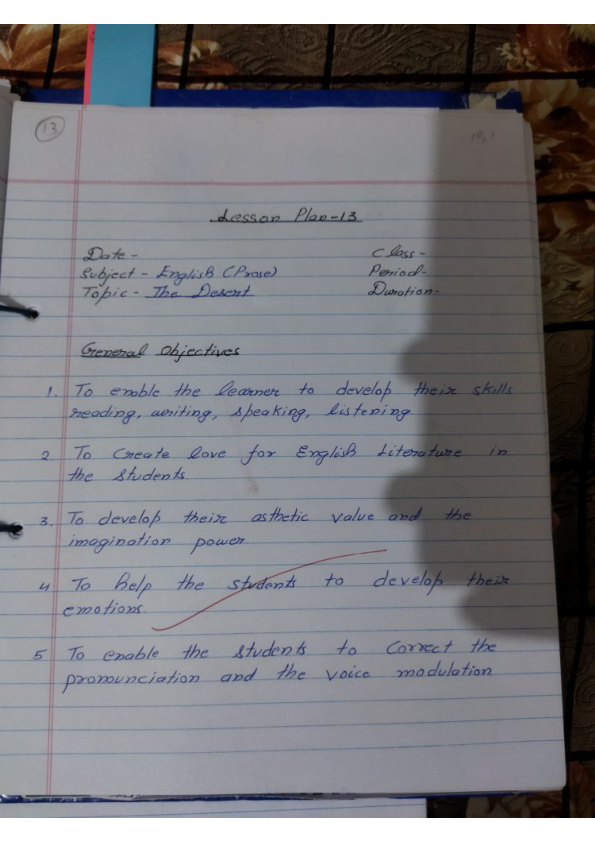 13
Lesson Plan-13
Date -
Class -
Subject - English (Prose)
Period-
Topic - The Desert
Duration-
General Objectives
1. To enable the learner to develop their skills
reading, writing, speaking, listening
2 To Create love for English Literature in
the students.
3. To develop their asthetic value and the
imagination power
4 To help the students to develop their
emotions.
5 To enable the students to Correct the
pronounciation and the voice modulation